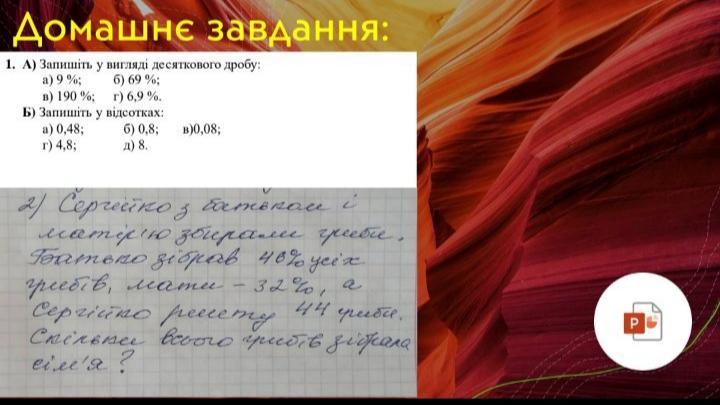 Домашнє завдання:
1. А) Запишіть у вигляді десяткового дробу:
а) 9 %; б) 69 %;
в) 190 %; г) 6,9 %.
Б) Запишіть у відсотках:
а) 0,48; б) 0,8; в)0,08;
г) 4,8; д) 8.
2) Сергійко з батьком і
матір'ю збирали гриби.
Батько зібрав 46% усіх
грибів, мати – 32%, а
Сергійко решту 44 гриби.
Скільки всього грибів зібрала
сім'я?
P